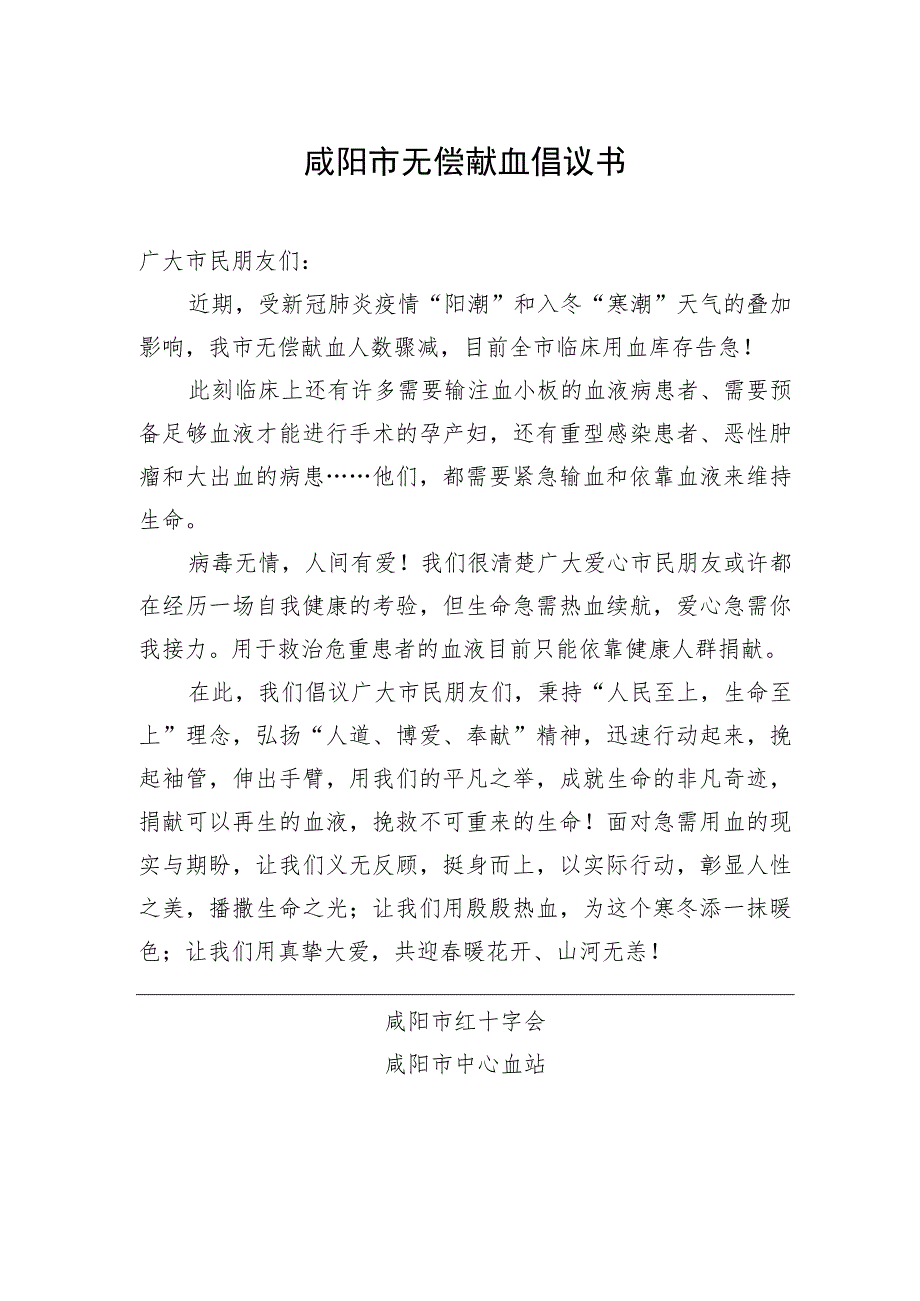 咸阳市无偿献血倡议书
广大市民朋友们：
近期，受新冠肺炎疫情“阳潮”和入冬“寒潮”天气的叠加
影响，我市无偿献血人数骤减，目前全市临床用血库存告急！
此刻临床上还有许多需要输注血小板的血液病患者、需要预
备足够血液才能进行手术的孕产妇，还有重型感染患者、恶性肿
瘤和大出血的病患……他们，都需要紧急输血和依靠血液来维持
生命。
病毒无情，人间有爱！我们很清楚广大爱心市民朋友或许都
在经历一场自我健康的考验，但生命急需热血续航，爱心急需你
我接力。用于救治危重患者的血液目前只能依靠健康人群捐献。
在此，我们倡议广大市民朋友们，秉持“人民至上，生命至
上”理念，弘扬“人道、博爱、奉献”精神，迅速行动起来，挽
起袖管，伸出手臂，用我们的平凡之举，成就生命的非凡奇迹，
捐献可以再生的血液，挽救不可重来的生命！面对急需用血的现
实与期盼，让我们义无反顾，挺身而上，以实际行动，彰显人性
之美，播撒生命之光；让我们用殷殷热血，为这个寒冬添一抹暖
色；让我们用真挚大爱，共迎春暖花开、山河无恙！
咸阳市红十字会
咸阳市中心血站